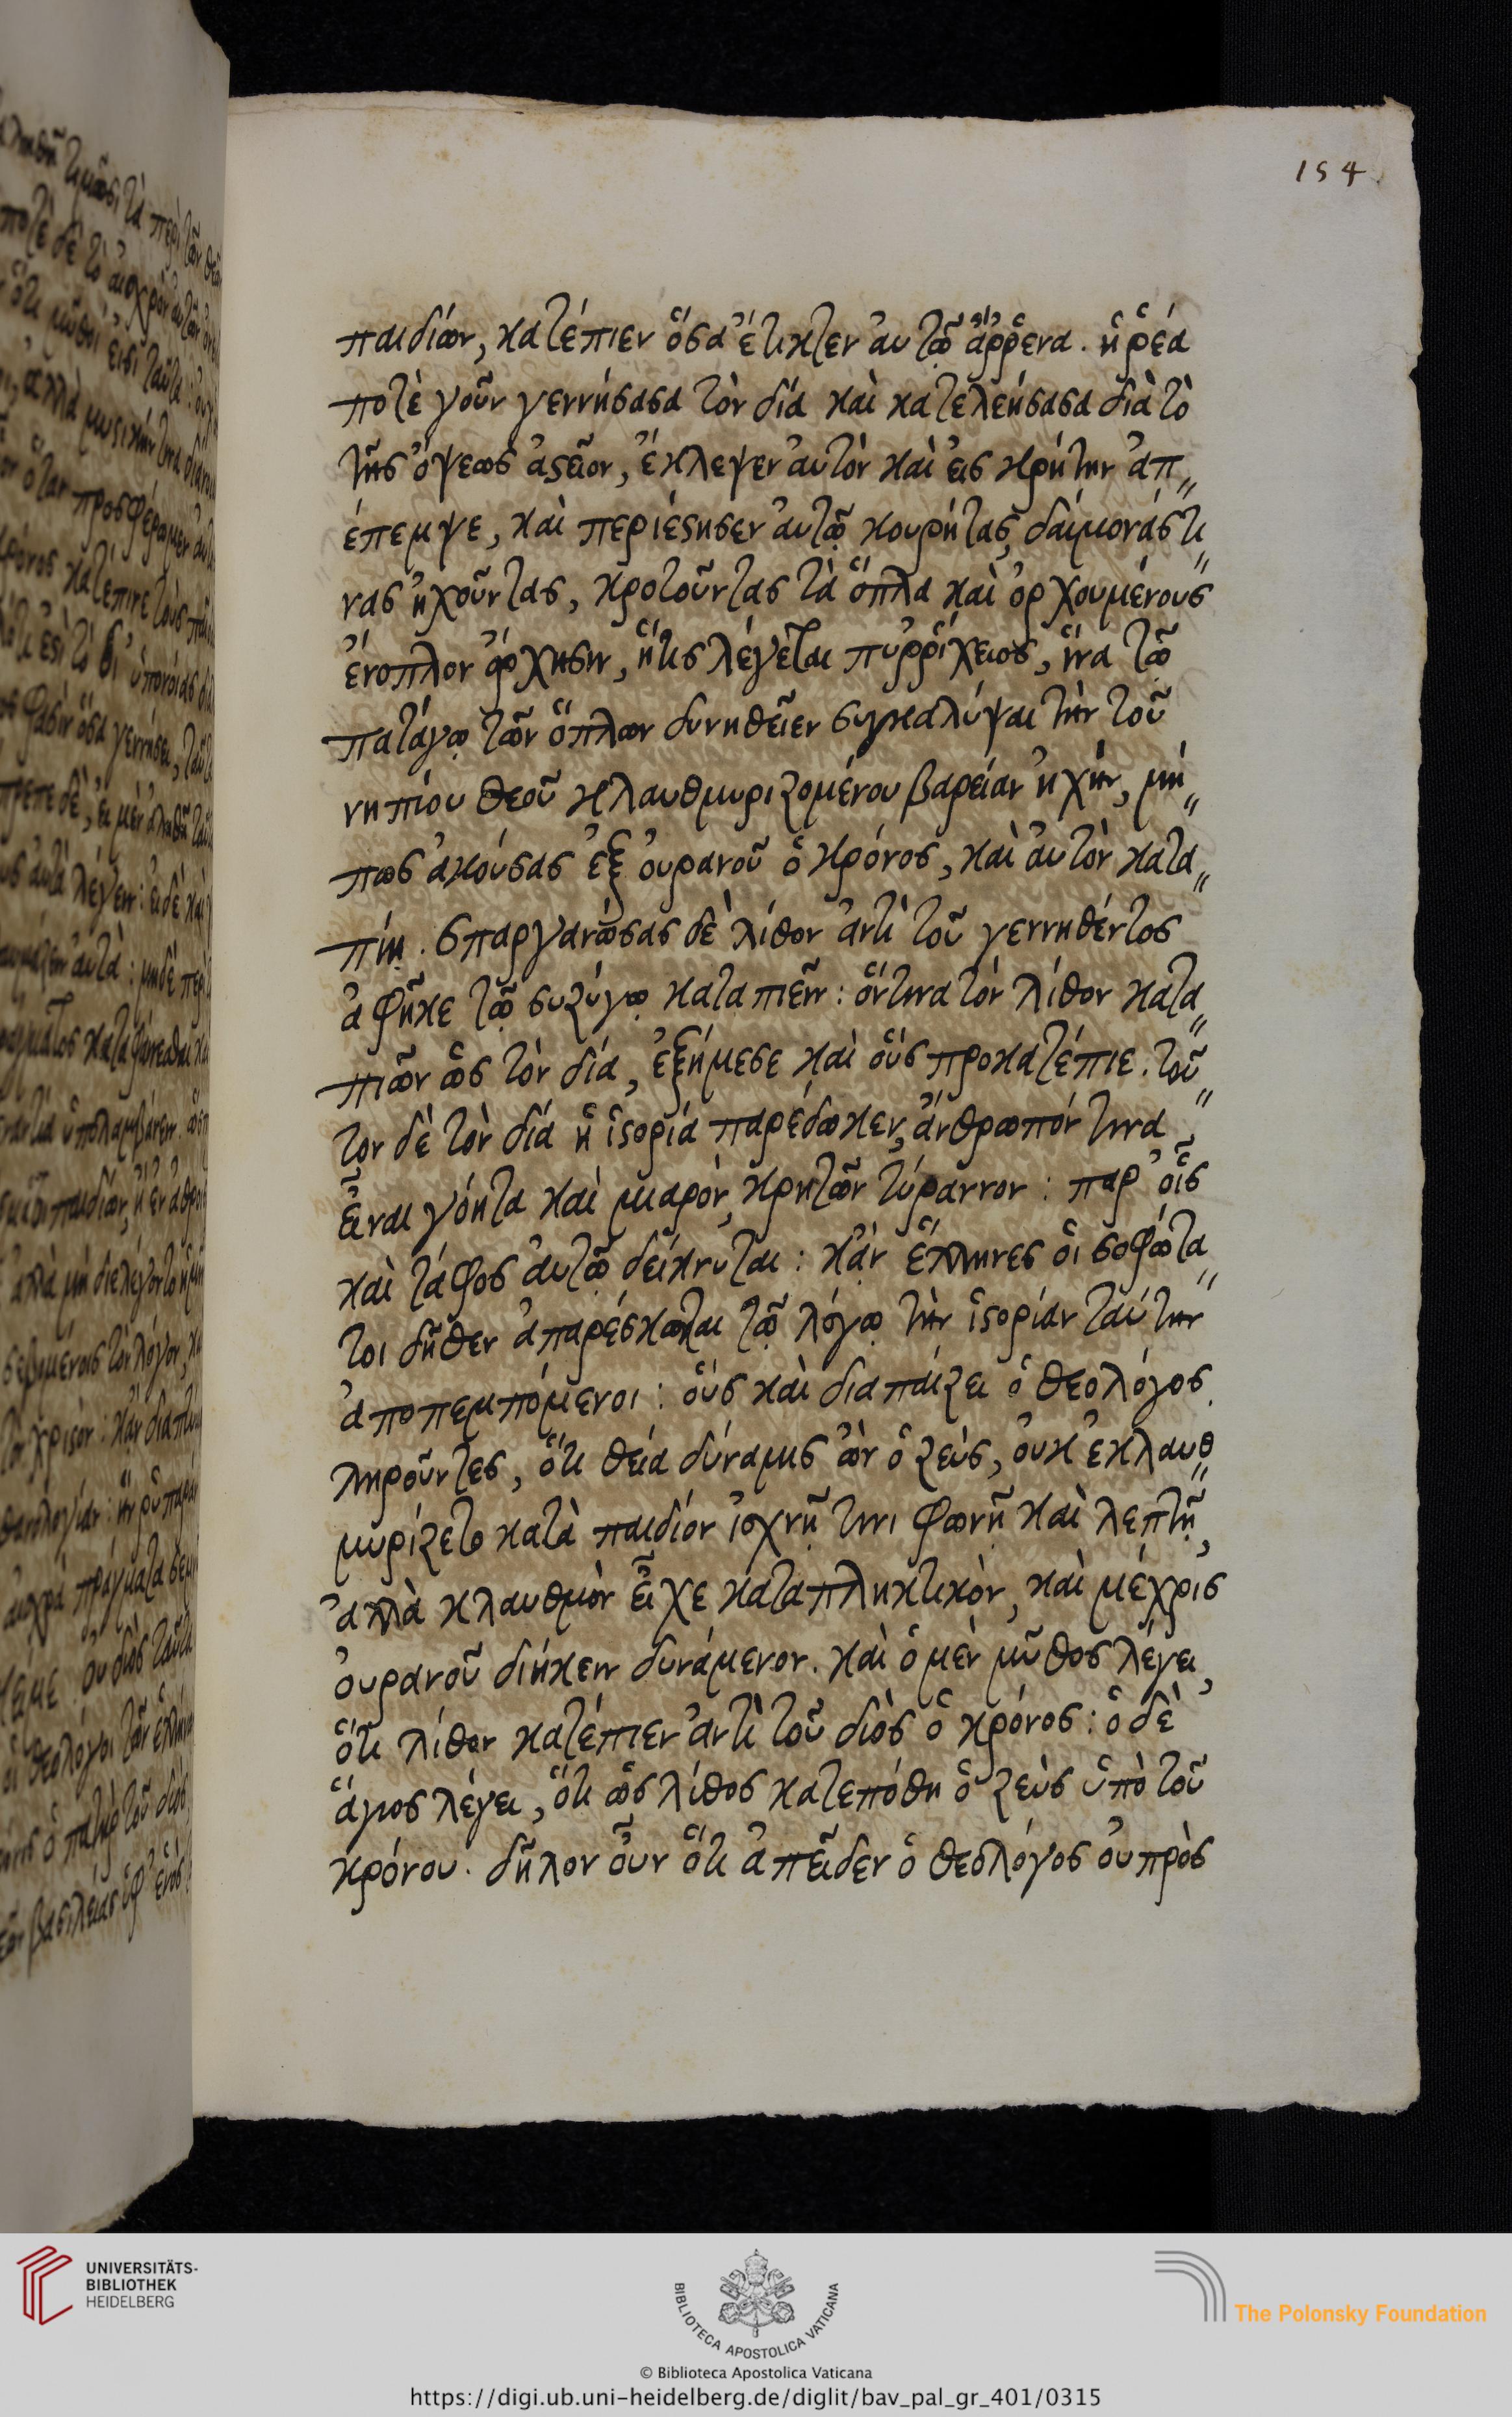 154
παιδίων, κατέπιεν ὅσα ἔτικτεν αὐτῶ ἄῤῥενα. ἡ ῥέα
ποτὲ γοῦν γεννήσασα τὸν δία καὶ κατελεήσασα διὰ τὸ
τῆς ὄψεως ἀστεῖον, ἔκλεψεν αὐτὸν καὶ εἰς κρήτην ἀπ
έπεμψε, καὶ περιέστησεν αὐτῷ κουρήτας, δαίμονάς τι
νας ἠχοῦντας, κροτοῦντας τὰ ὅπλα καὶ ὀρχουμένους
ἔνοπλον ὄρχησιν, ἥτις λέγεται πυῤῥίχειος, ἵνα τῷ
πατάγῳ τῶν ὅπλων δυνηθεῖεν συγκαλύψαι τὴν τοῦ
νηπίου θεοῦ κλαυθμυριζομένου βαρείαν ἠχήν, μή
πως ἀκούσας ἐξ οὐρανοῦ ὁ κρόνος, καὶ αὐτὸν κατα
πίῃ. σπαργανώσας δὲ λίθον ἀντὶ τοῦ γεννηθέντος
ἀφῆκε τῷ συζύγῳ καταπιεῖν: ὅντινα τὸν λίθον κατα
πιὼν ὡς τὸν δία, ἐξήμεσε καὶ οὓς προκατέπιε. τοῦ
τον δὲ τὸν δία ἡ ἱστορία παρέδωκεν, ἄνθρωπόν τινα
εἶναι γόητα καὶ μιαρὸν, κρητῶν τύραννον: παρ' οἷς
καὶ τάφος αὐτῷ δείκνυται: κἂν ἕλληνες οἱ σοφώτα
τοι δῆθεν ἀπαρέσκωνται τῷ λόγῳ τὴν ἱστορίαν ταύτην
ἀποπεμπόμενοι: οὓς καὶ διαπαίζει ὁ θεολόγος.
ληροῦντες, ὅτι θεία δύναμις ὢν ὁ ζεὺς, οὐκ ἐκλαυθ
μυρίζετο κατὰ παιδίον ἰσχνῇ τινι φωνῇ καὶ λεπτῇ,
ἀλλὰ κλαυθμὸν εἶχε καταπληκτικὸν, καὶ μέχρις
οὐρανοῦ διήκειν δυνάμενον. καὶ ὁ μὲν μῦθος λέγει,
ὅτι λίθον κατέπιεν ἀντὶ τοῦ διὸς ὁ κρόνος: ὁ δὲ
ἅγιος λέγει, ὅτι ὡς λίθος κατεπόθη ὁ ζεὺς ὑπὸ τοῦ
κρόνου. δῆλον οὖν ὅτι ἀπεῖδεν ὁ θεολόγος οὐ πρὸς
UNIVERSITÄTS-
BIBLIOTHEK
HEIDELBERG
BIBLIOTECA APOSTOLICA VATICANA
The Polonsky Foundation
© Biblioteca Apostolica Vaticana
https://digi.ub.uni-heidelberg.de/diglit/bav_pal_gr_401/0315